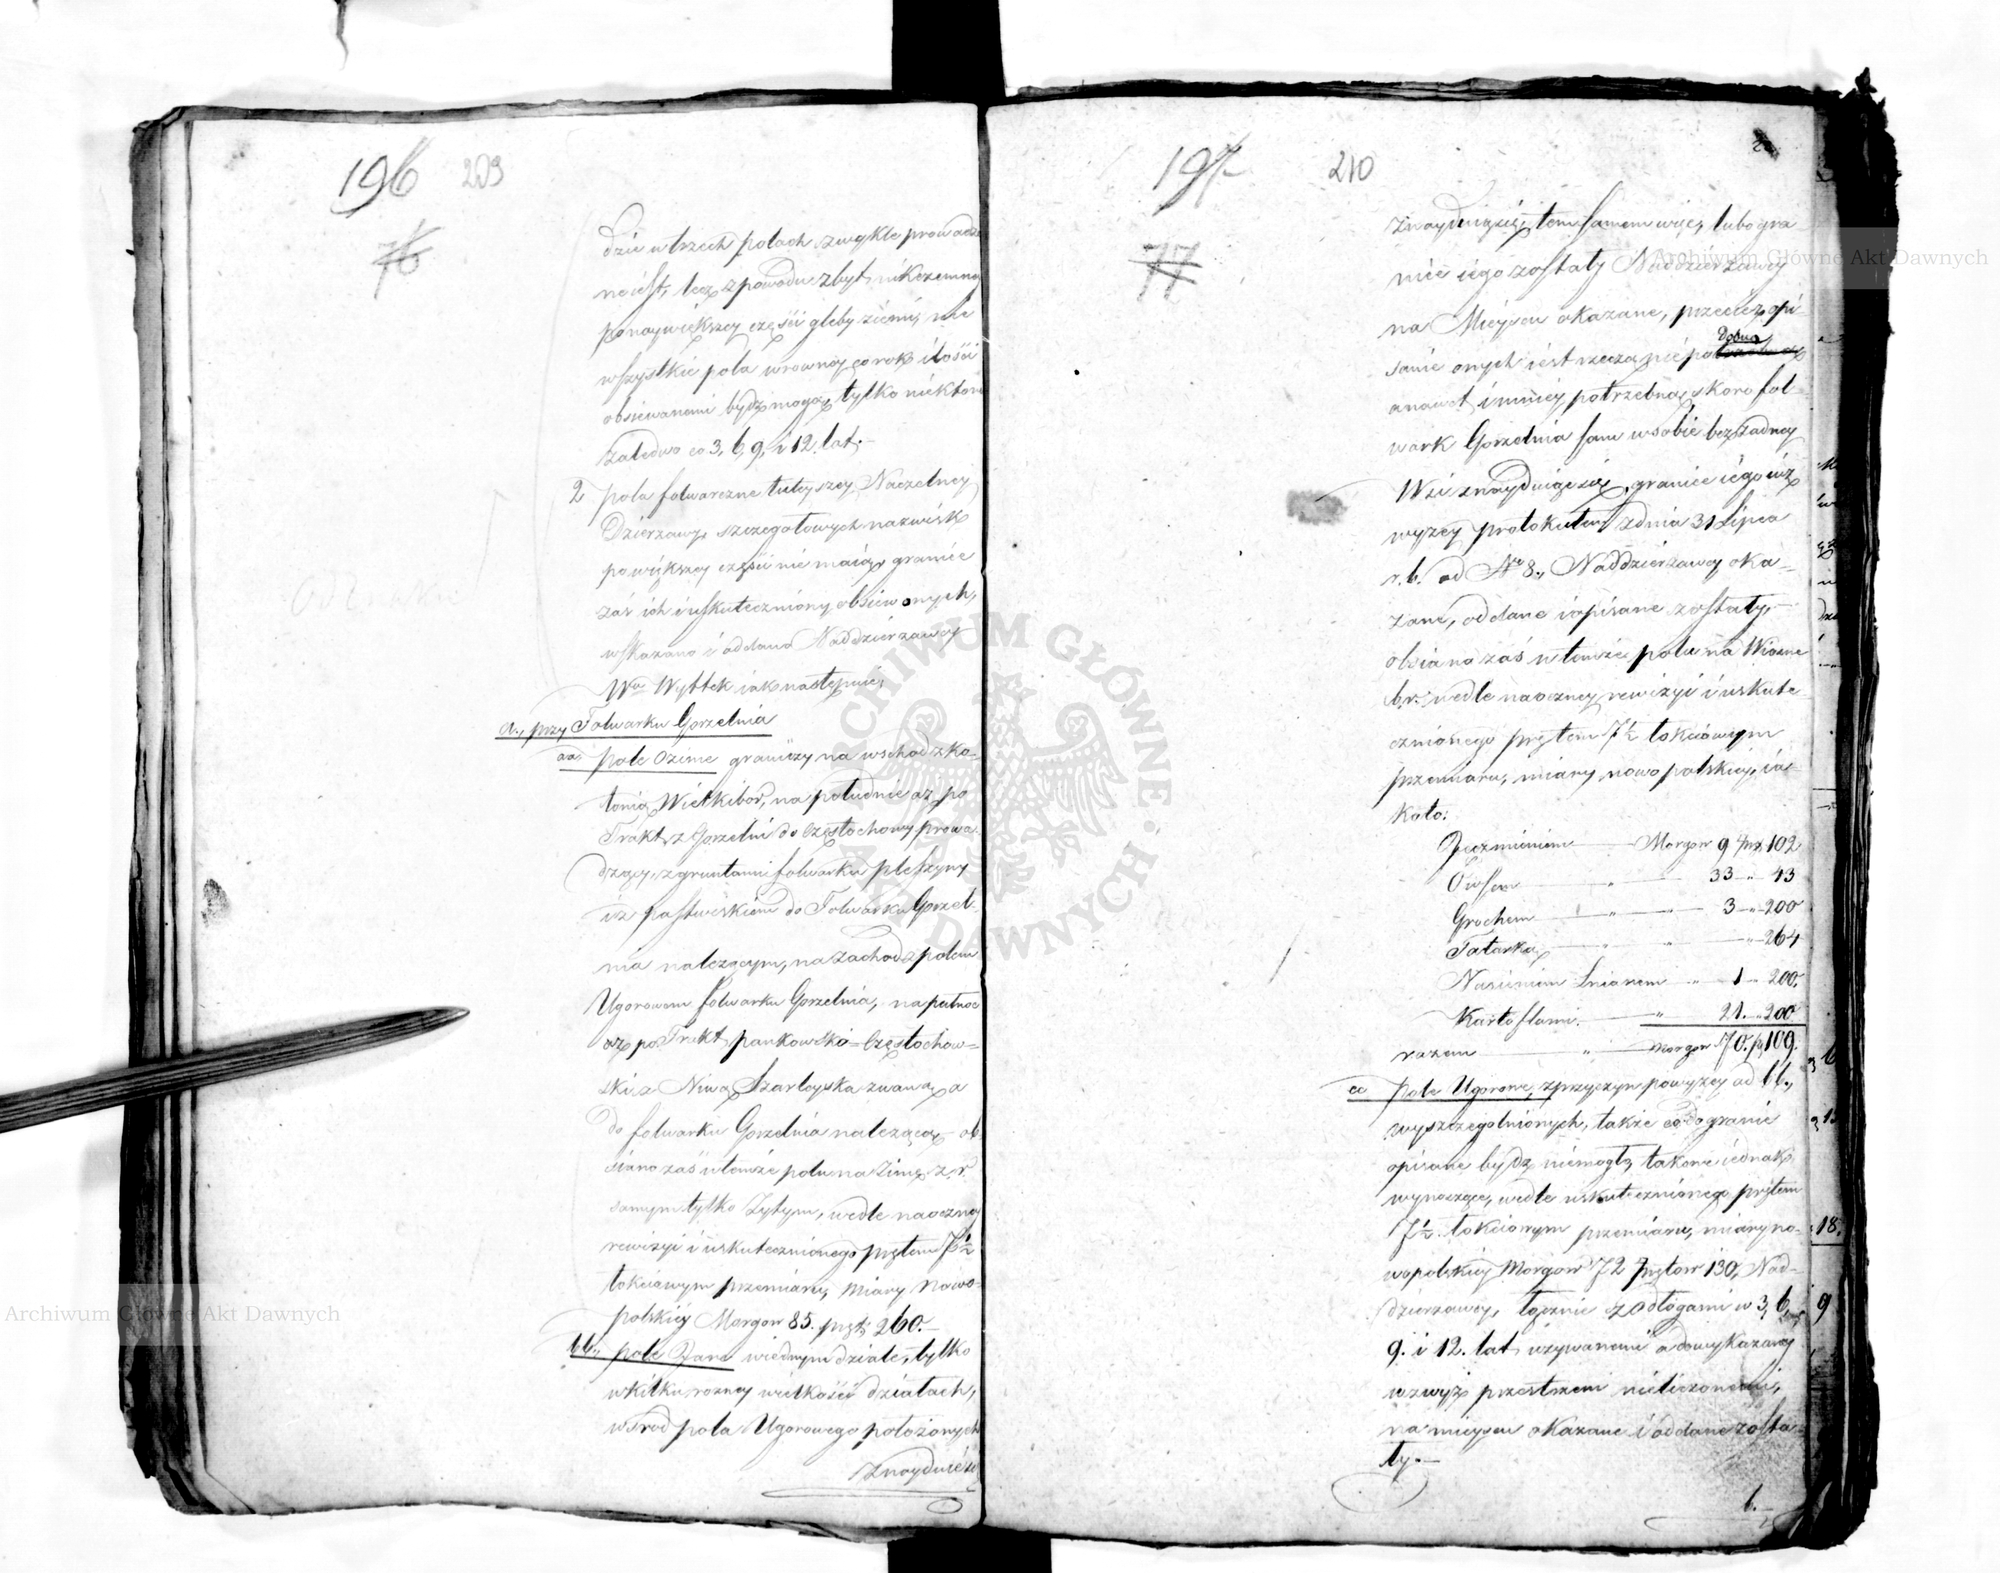 196 209
76
dzie w trzech polach zwykle prowadzo
ne iest, lecz z powodu zbyt nikczemney
po naywiększey części gleby ziemi, nie
wszystkie pola w rowney co rok ilości
obsiewanemi bydz mogą, tylko niektore
zaledwo co 3, 6, 9, i 12 lat.—
2 pola folwarczne tuteyszey Naczelney
Dzierzawy, szczegołowych nazwisk
po większey części nie maią, granice
zaś ich i uskuteczniony obsiew onych,
wskazano i oddano Naddzierzawcy
Wu Wyttek iak następuie,
a., przy Folwarku Gorzelnia
aa, pole Ozime graniczy na wschod z Ko-
lonią Wielkibor, na południe aż po
Trakt z Gorzelni do Częstochowy prowa-
dzący, z gruntami folwarku pleszyny
i z pastwiskiem do Folwarku Gorzel-
nia należącym, na zachod z polem
Ugorowem folwarku Gorzelnia, na pułnoc
aż po Trakt pankowsko-Częstochow-
ski z Niwą Szarleyska zwaną a
do folwarku Gorzelnia należącą — ob-
siano zaś w temże polu na Zimę z. r.
samym tylko Żytym, wedle naoczney
rewizyi i uskutecznionego prętem 7½
łokciowym przemiaru, miary nowo-
polskiey Morgow 85. pręt. 260.—
bb., pole Jare w iednym dziale, tylko
w kilku rozney wielkości działach,
wśrod pola Ugorowego położonych
znayduie się
197 210
77
znayduie się, tem samem więc, lubo gra
nice iego zostały Naddzierzawcy
na Mieyscu okazane, przecież opi-
sanie onych iest rzeczą nie podobną
a nawet i mniey potrzebną, skoro fol-
wark Gorzelnia sam w sobie bez żadney
Wsi znayduie się, granice iego iuż
wyzey protokułem z dnia 31 Lipca
r. b. ad No 8., Naddzierzawcy oka-
zane, oddane i opisane zostały,—
obsiano zaś w temże polu na Wiosne
b. r. wedle naoczney rewizyi i uskute-
cznionego prętem 7½ łokciowym
przemiaru, miary nowo polskiey, ia-
koto:
Jęczmieniem — Morgow 9 pręt 102
Owsem — „ — 33 „ 43
Grochem — „ — „ — 3 „ 200
Tatarką — „ — „ — „ 264
Nasieniem Lnianem „ 1 „ 200.
Kartoflami. — „ 21. „ 200
razem — „ — Morgow 70. p. 109.
cc pole Ugorowe, z przyczyn powyzey ad bb.,
wyszczegolnionych, także co do granic
opisane bydz niemogło, takowe iednak
wynoszące, wedle uskutecznionego prętem
7½ łokciowym przemiaru, miary no-
wopolskiey Morgow 72 Prętow 130, Nad-
dzierzawcy, łącznie z odłogami w 3, 6,
9. i 12. lat używanemi a do wykazaney
wzwyż przestrzeni nieliczonemi,
na mieyscu okazane i oddane zosta-
ły.—
6.—
Archiwum Główne Akt Dawnych
Archiwum Główne Akt Dawnych
ARCHIWUM GŁÓWNE AKT DAWNYCH